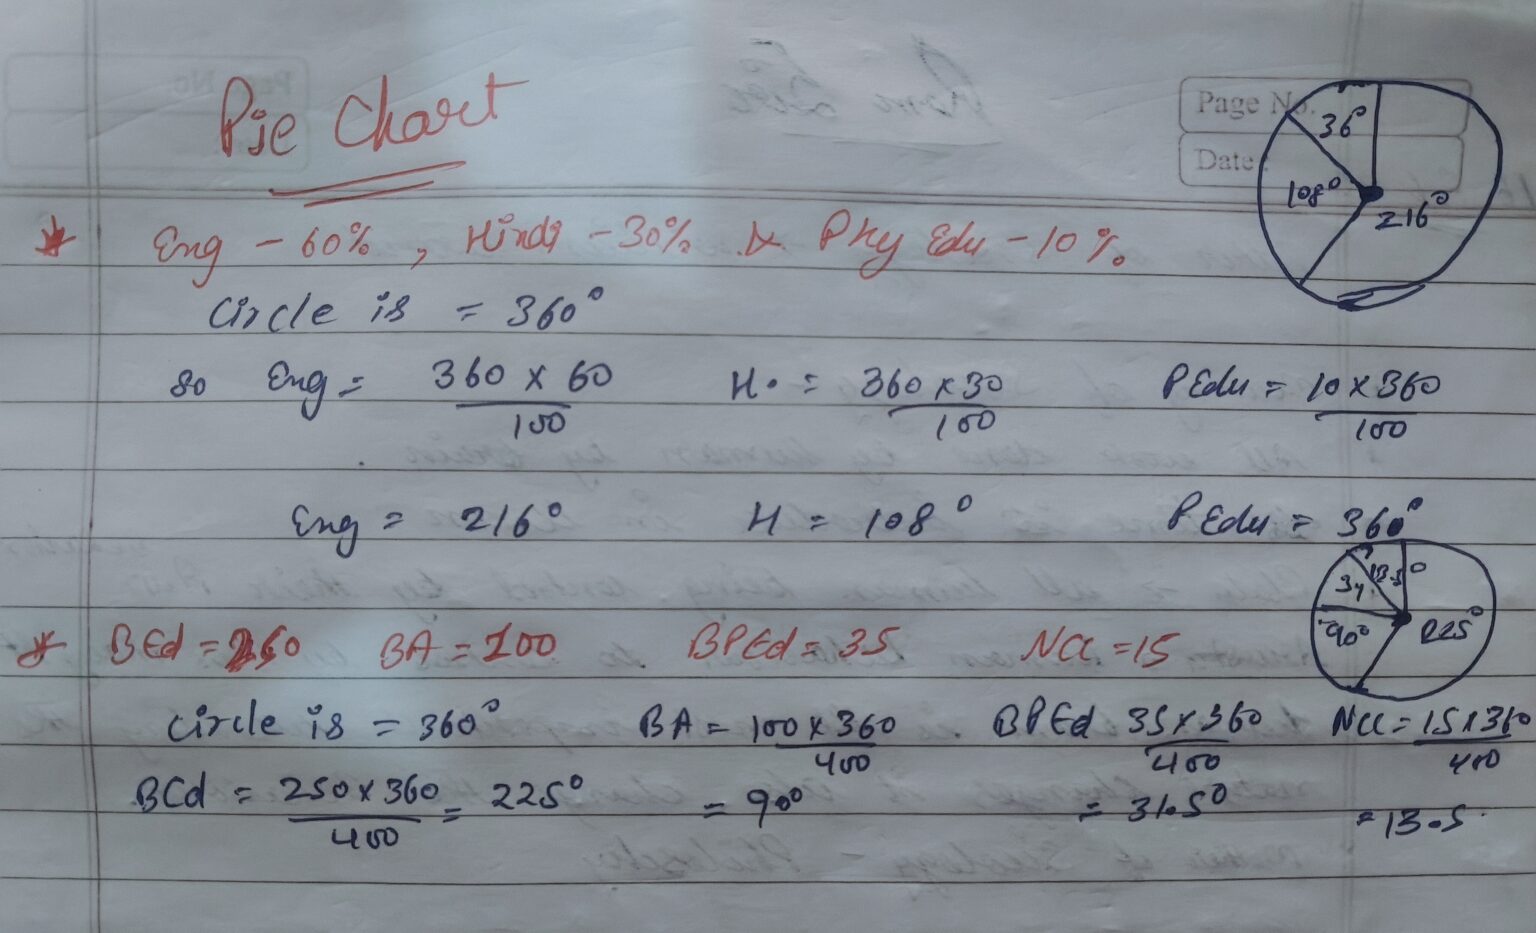 Pie Chart
Page No.
Date
36°
108°
216°
* Eng - 60%, Hindi - 30% & Phy Edu - 10%.
Circle is = 360°
so Eng = 360 x 60 / 100 H. = 360 x 30 / 100 P Edu = 10 x 360 / 100
Eng = 216° H = 108° P Edu = 360°
13.5°
90°
225°
* BEd = 250 BA = 100 BPEd = 35 NCC = 15
Circle is = 360° BA = 100 x 360 / 400 . BPEd 35 x 360 / 400 NCC = 15 x 360 / 400
BEd = 250 x 360 / 400 = 225° = 90° = 31.5° = 13.5